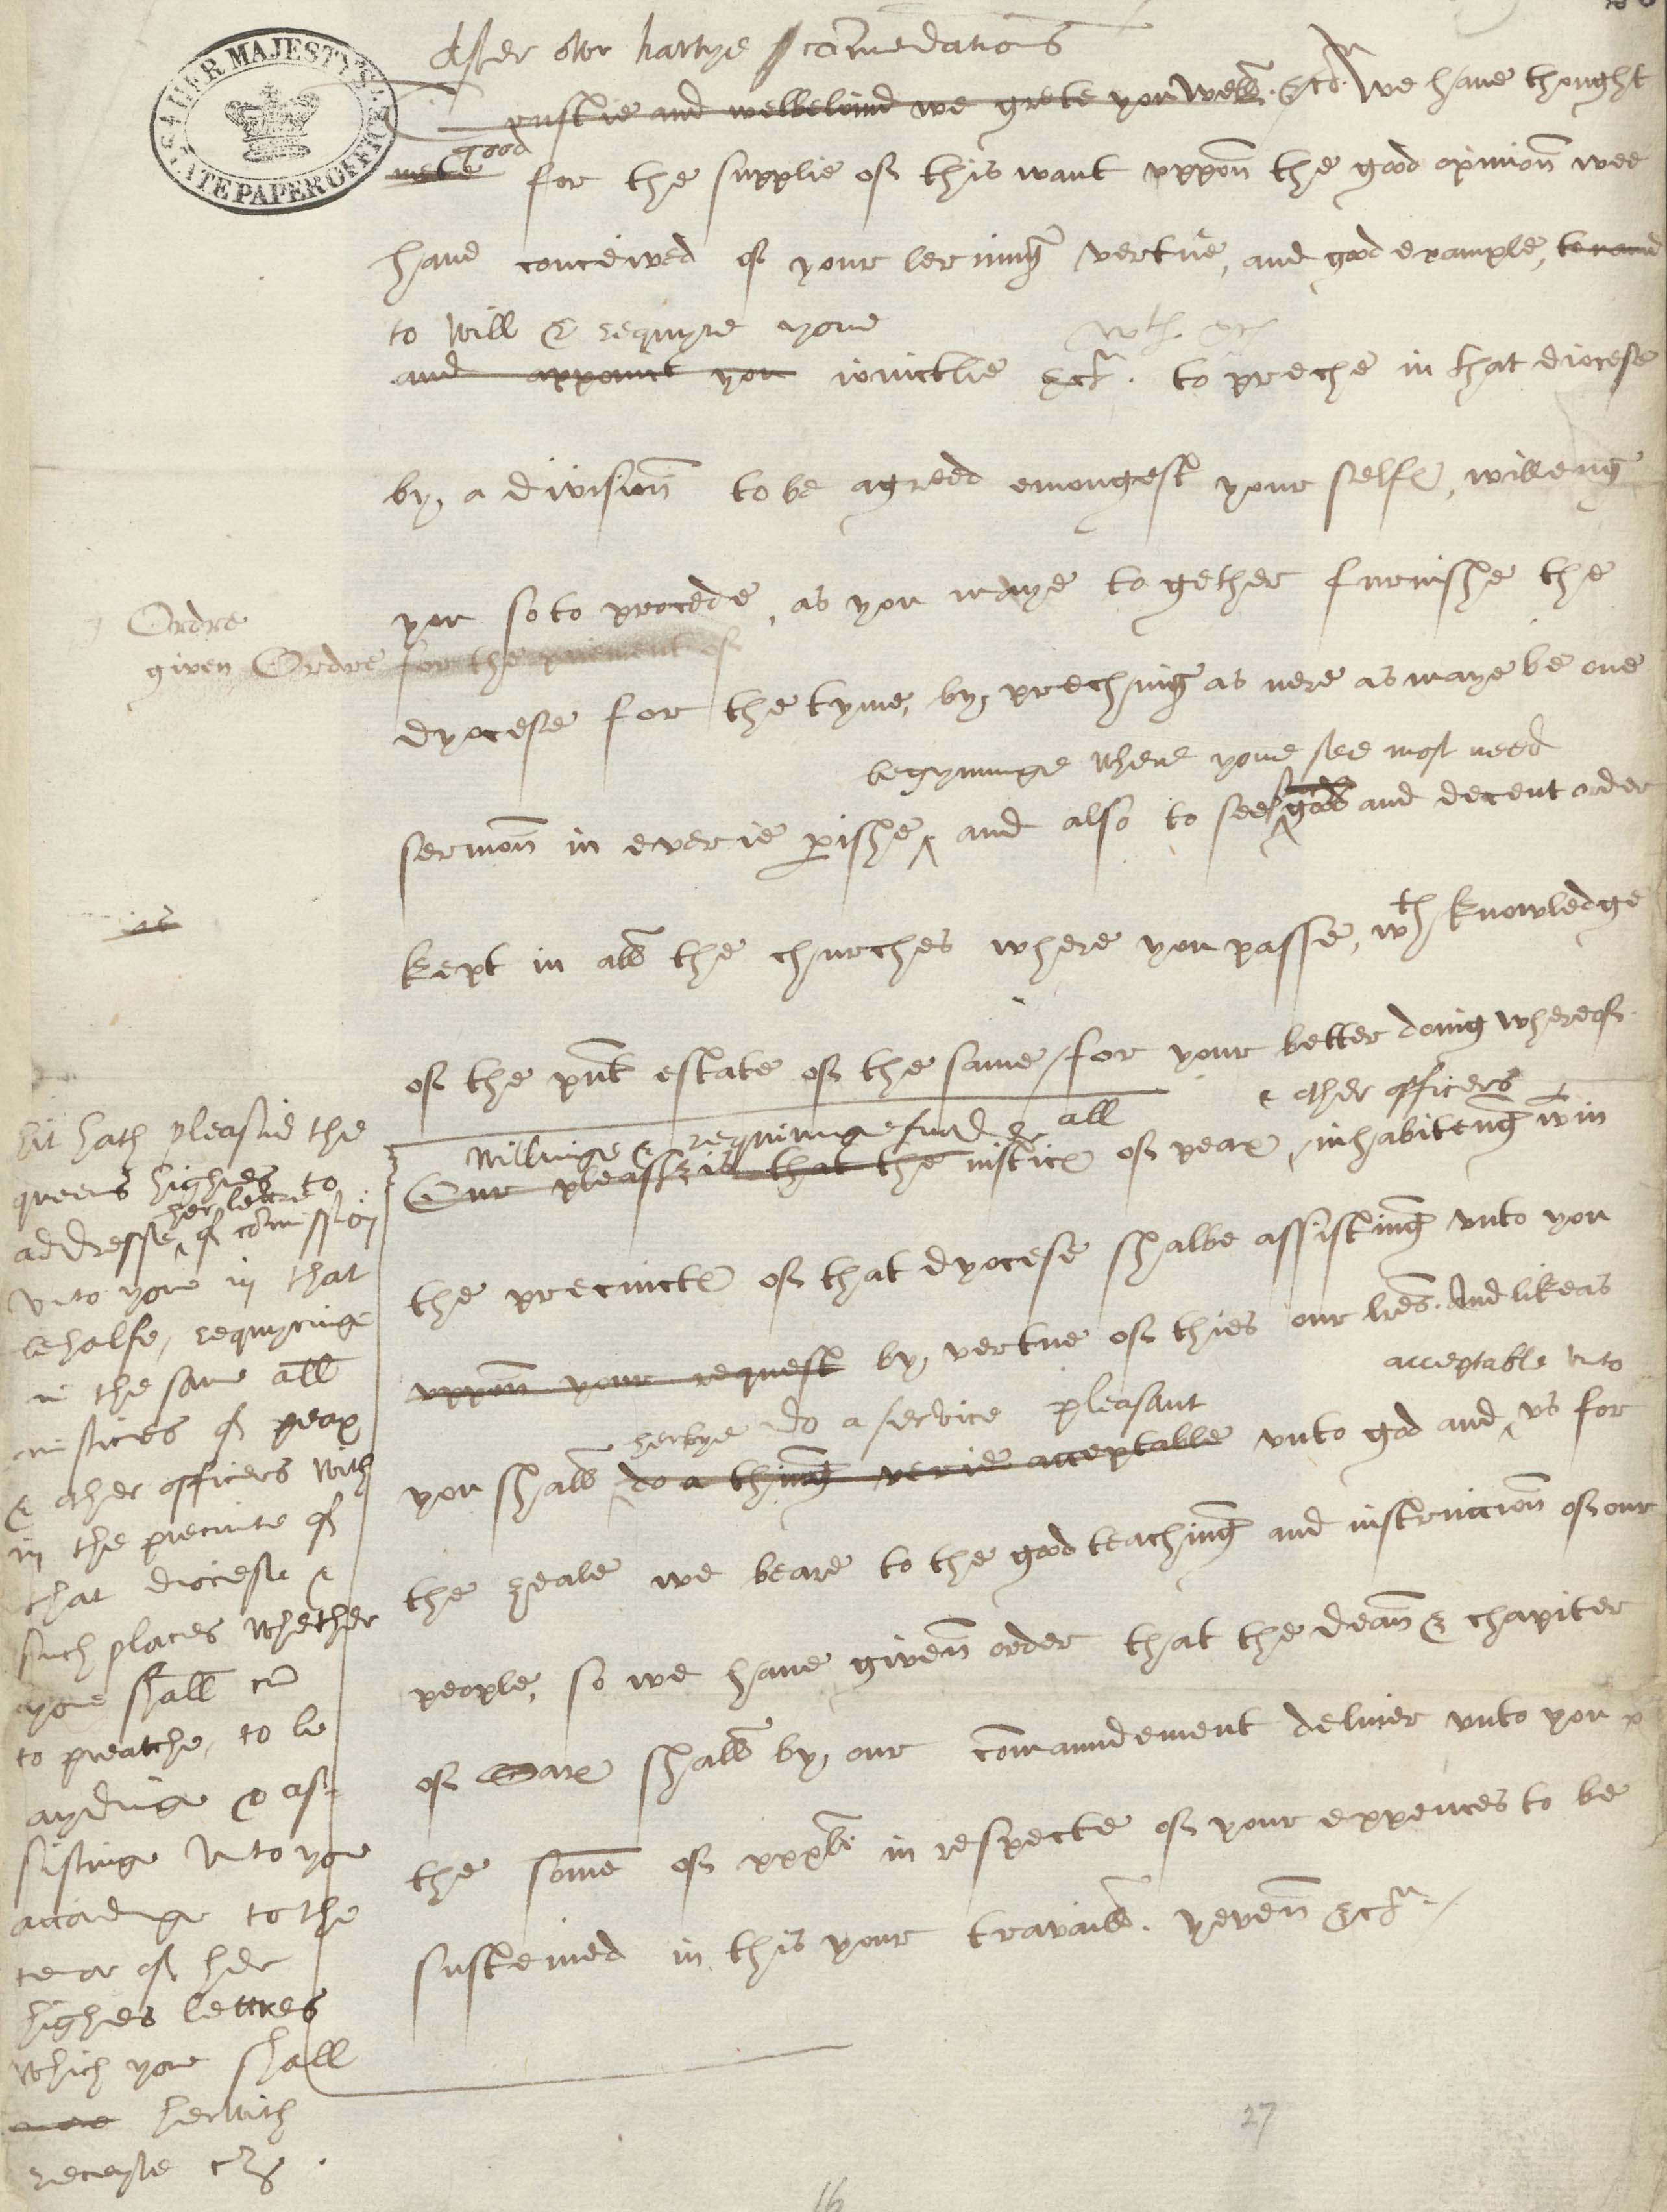 HER MAJESTY'S
STATE PAPER OFFICE
After owr hartye comendations
Trustie and welbeloved we grete you well. &ct. We have thought
mete good for the supplie of this want uppon the good opinion wee
have conceived of your lerning vertue, and good example,
to will & requyre yowe
and appoint you iointlie &ct. to preche in that diocese
by a division to be agreed emongest your selfe, willeng
you so to procede, as you maye together furnishe the
Ordre
given Ordre for the
dyocese for the tyme, by preching as nere as maye be one
begynninge where yowe see most need
sermon in everie pishe, and also to see good and decent order
kept in all the churches where you passe, wth knowledge
of the pnt estate of the same / for your better doing whereof
Willinge & requiringe all & other officers
Our pleasr is that the iustice of peax, inhabiteng wtin
the precincte of that dyocese shalbe assisting unto you
uppon your request by vertue of thies our lres. And likeas
herbye do a service pleasant acceptable unto
you shall do a thing verie acceptable unto god and us for
the zeale we beare to the good teaching and instruccion of our
people, so we have given order that the dean & chapiter
of Sar shall by our comaundement deliver unto you
the some of xxxli in respecte of your expences to be
susteined in this your travaill. yeven &ct.
hit hath pleasid the
quenes highnes to
addresse her lettre of comission
unto yowe in that
behalfe, requyringe
in the same all
iustices of peax
& other officers with
in the precincte of
that diocese &
such places whether
yowe shall
to preatche, to be
aydinge & as-
sistinge unto yow
accordinge to the
tenor of her
highnes lettres
which yowe shall
herwith
receyve
27
16